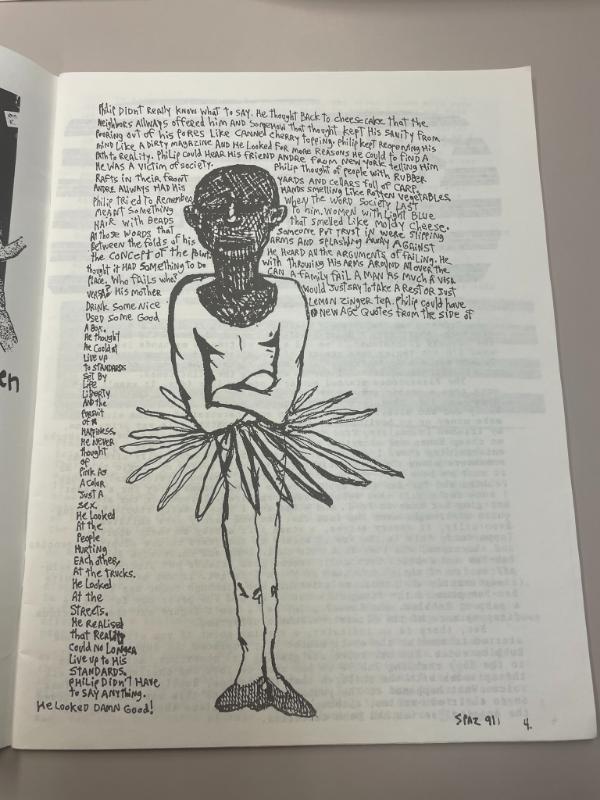 Philip DIDNT REALLY KNOW WHAT to SAY. He thought BACK to cheesecake that the
Neighbors Allways offered him AND somehow that thought kept His SANITY FROM
POURING OUT OF his PORES LIKE CANNED cherry topping. Philip kept Reopening His
MIND Like A Dirty MAGAZINE AND He Looked For more REASONS He could to FIND A
Path to Reality. Philip Could HEAR His FRIEND ANDRE FROM NEW YORK telling Him
He WAS A VICTIM of society. Philip thought of people with RUBBER
RAFTS in their FRONT YARDS AND CELLARS Full of CARP.
ANDRE Allways HAD His HANDS Smelling Like Rotten vegetables.
Philip tried to Remember When the WORD SOCIETY LAST
MEANT Something to Him. WOMEN with Light BLUE
HAIR with BEADS that smelled Like moldy Cheese.
All those WORDS that Someone Put TRUST IN WERE Slipping
Between the FOLDS of his ARMS AND SPLASHING AWAY AGAINST
the CONCEPT OF the Point. He HEARD All the ARGUMENTS of FAILING. He
thought it HAD Something to Do with throwing His ARMS AROUND All over the
Place. Who fails who? CAN A FAMILY FAIL A MAN AS Much A VISA
VERSA? His mother Would Just SAY to take A Rest OR Just
DRINK Some Nice LEMON ZINGER teA. Philip could have
USED Some Good NEW AGE Quotes FROM the SIDE of
A Box.
He thought
He Couldnt
Live up
to STANDARDS
Set By
Life
Liberty
AND the
PURSUIT
of
HAPPINESS.
He NEVER
thought
of
Pink As
A Color
Just A
Sex.
He Looked
At the
People
HURTING
EACH other,
At the TRUCKS.
He Looked
At the
STREETS.
He REALISED
that Reality
Could No Longer
Live up to His
STANDARDS.
PHILIP DIDN'T HAVE
to SAY ANYTHING.
He LOOKED DAMN Good!
SPAZ 91
4.
en